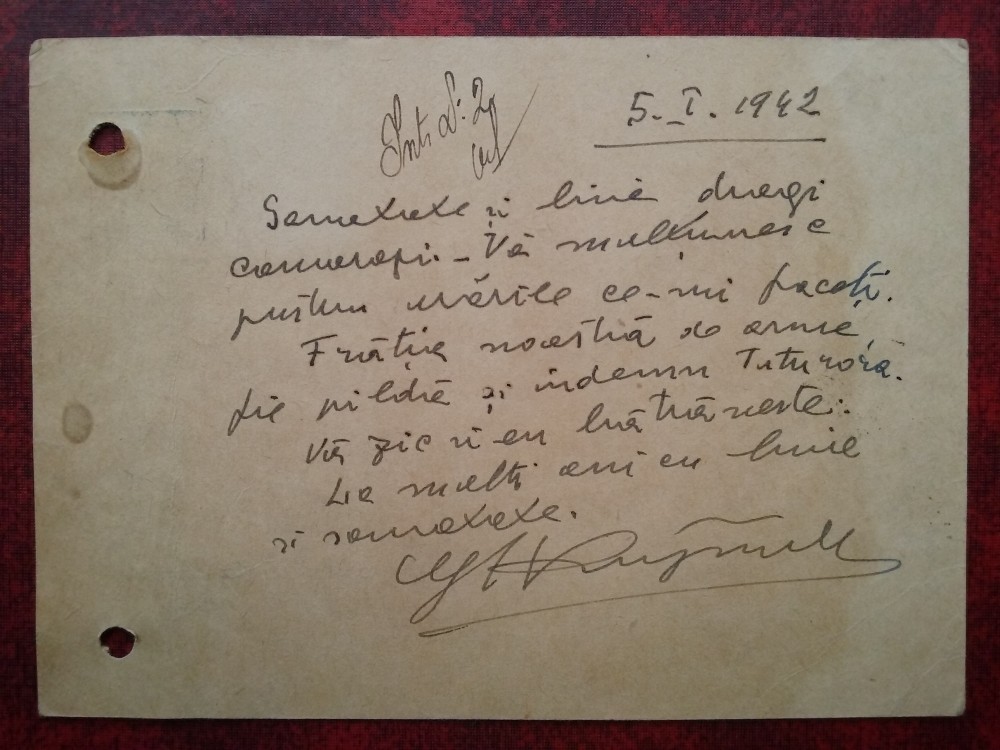 5. I. 1942
Sanatate și bine dragi
camarazi. – Vă mulțumesc
pentru urările ce-mi faceți.
Frăția noastră de arme
fie pildă și indemn Tuturora.
Vă zic si eu bătrânește:
La mulți ani cu bine
si sanatate.